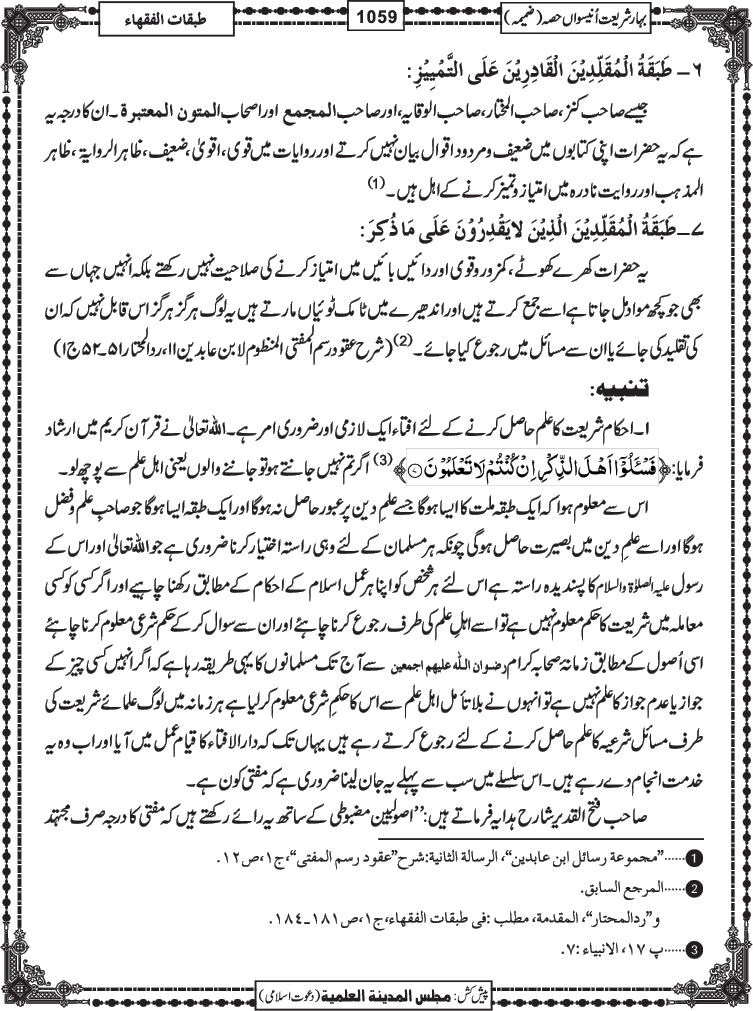 بہار شریعت اُنیسواں حصہ (ضمیمہ)
1059
طبقات الفقهاء
۶ – طَبَقَةُ الْمُقَلِّدِيْنَ الْقَادِرِيْنَ عَلَى التَّمْيِيْزِ:
جیسے صاحب کنز، صاحب المختار، صاحب الوقایہ، اور صاحب المجمع اور اصحاب المتون المعتبرة ۔ ان کا درجہ یہ
ہے کہ یہ حضرات اپنی کتابوں میں ضعیف و مردود اقوال بیان نہیں کرتے اور روایات میں قوی، اقویٰ، ضعیف، ظاہر الروایۃ، ظاہر
المذہب اور روایت نادرہ میں امتیاز و تمیز کرنے کے اہل ہیں۔ (1)
۷ – طَبَقَةُ الْمُقَلِّدِيْنَ الَّذِيْنَ لَا يَقْدِرُوْنَ عَلَى مَا ذُكِرَ:
یہ حضرات کھرے کھوٹے، کمزور و قوی اور دائیں بائیں میں امتیاز کرنے کی صلاحیت نہیں رکھتے بلکہ انہیں جہاں سے
بھی جو کچھ مواد مل جاتا ہے اسے جمع کرتے ہیں اور اندھیرے میں ٹامک ٹوئیاں مارتے ہیں یہ لوگ ہرگز ہرگز اس قابل نہیں کہ ان
کی تقلید کی جائے یا ان سے مسائل میں رجوع کیا جائے۔ (2) (شرح عقود رسم المفتی المنظوم لابن عابدین ۱۱، ردالمحتار ۵۱۔۵۲ ج۱)
تنبيه:
۱۔ احکام شریعت کا علم حاصل کرنے کے لئے افتاء ایک لازمی اور ضروری امر ہے۔ اللہ تعالیٰ نے قرآن کریم میں ارشاد
فرمایا: ﴿فَسْـَٔلُوْۤا اَهْلَ الذِّكْرِ اِنْ كُنْتُمْ لَا تَعْلَمُوْنَ ۷﴾ (3) اگر تم نہیں جانتے ہو تو جاننے والوں یعنی اہل علم سے پوچھ لو۔
اس سے معلوم ہوا کہ ایک طبقہ ملت کا ایسا ہوگا جسے علم دین پر عبور حاصل نہ ہوگا اور ایک طبقہ ایسا ہوگا جو صاحب علم و فضل
ہوگا اور اسے علم دین میں بصیرت حاصل ہوگی چونکہ ہر مسلمان کے لئے وہی راستہ اختیار کرنا ضروری ہے جو اللہ تعالیٰ اور اس کے
رسول علیہ الصلوٰۃ والسلام کا پسندیدہ راستہ ہے اس لئے ہر شخص کو اپنا ہر عمل اسلام کے احکام کے مطابق رکھنا چاہیے اور اگر کسی کو کسی
معاملہ میں شریعت کا حکم معلوم نہیں ہے تو اسے اہلِ علم کی طرف رجوع کرنا چاہئے اور ان سے سوال کر کے حکم شرعی معلوم کرنا چاہئے
اسی اُصول کے مطابق زمانہ صحابہ کرام رضوان الله عليهم اجمعين سے آج تک مسلمانوں کا یہی طریقہ رہا ہے کہ اگر انہیں کسی چیز کے
جواز یا عدم جواز کا علم نہیں ہے تو انہوں نے بلا تأمل اہل علم سے اس کا حکمِ شرعی معلوم کر لیا ہے ہر زمانہ میں لوگ علمائے شریعت کی
طرف مسائل شرعیہ کا علم حاصل کرنے کے لئے رجوع کرتے رہے ہیں یہاں تک کہ دارالافتاء کا قیام عمل میں آیا اور اب وہ یہ
خدمت انجام دے رہے ہیں۔ اس سلسلے میں سب سے پہلے یہ جان لینا ضروری ہے کہ مفتی کون ہے۔
صاحب فتح القدیر شارح ہدایہ فرماتے ہیں: ”اصولیین مضبوطی کے ساتھ یہ رائے رکھتے ہیں کہ مفتی کا درجہ صرف مجتہد
1 ......”مجموعة رسائل ابن عابدين“، الرسالة الثانية: شرح ”عقود رسم المفتی“، ج۱، ص۱۲.
2 ......المرجع السابق.
و ”ردالمحتار“، المقدمة، مطلب: فی طبقات الفقهاء، ج۱، ص۱۸۱۔۱۸٤.
3 ......پ ۱۷، الانبیاء: ۷.
پیش کش: مجلس المدينة العلمية (دعوت اسلامی)